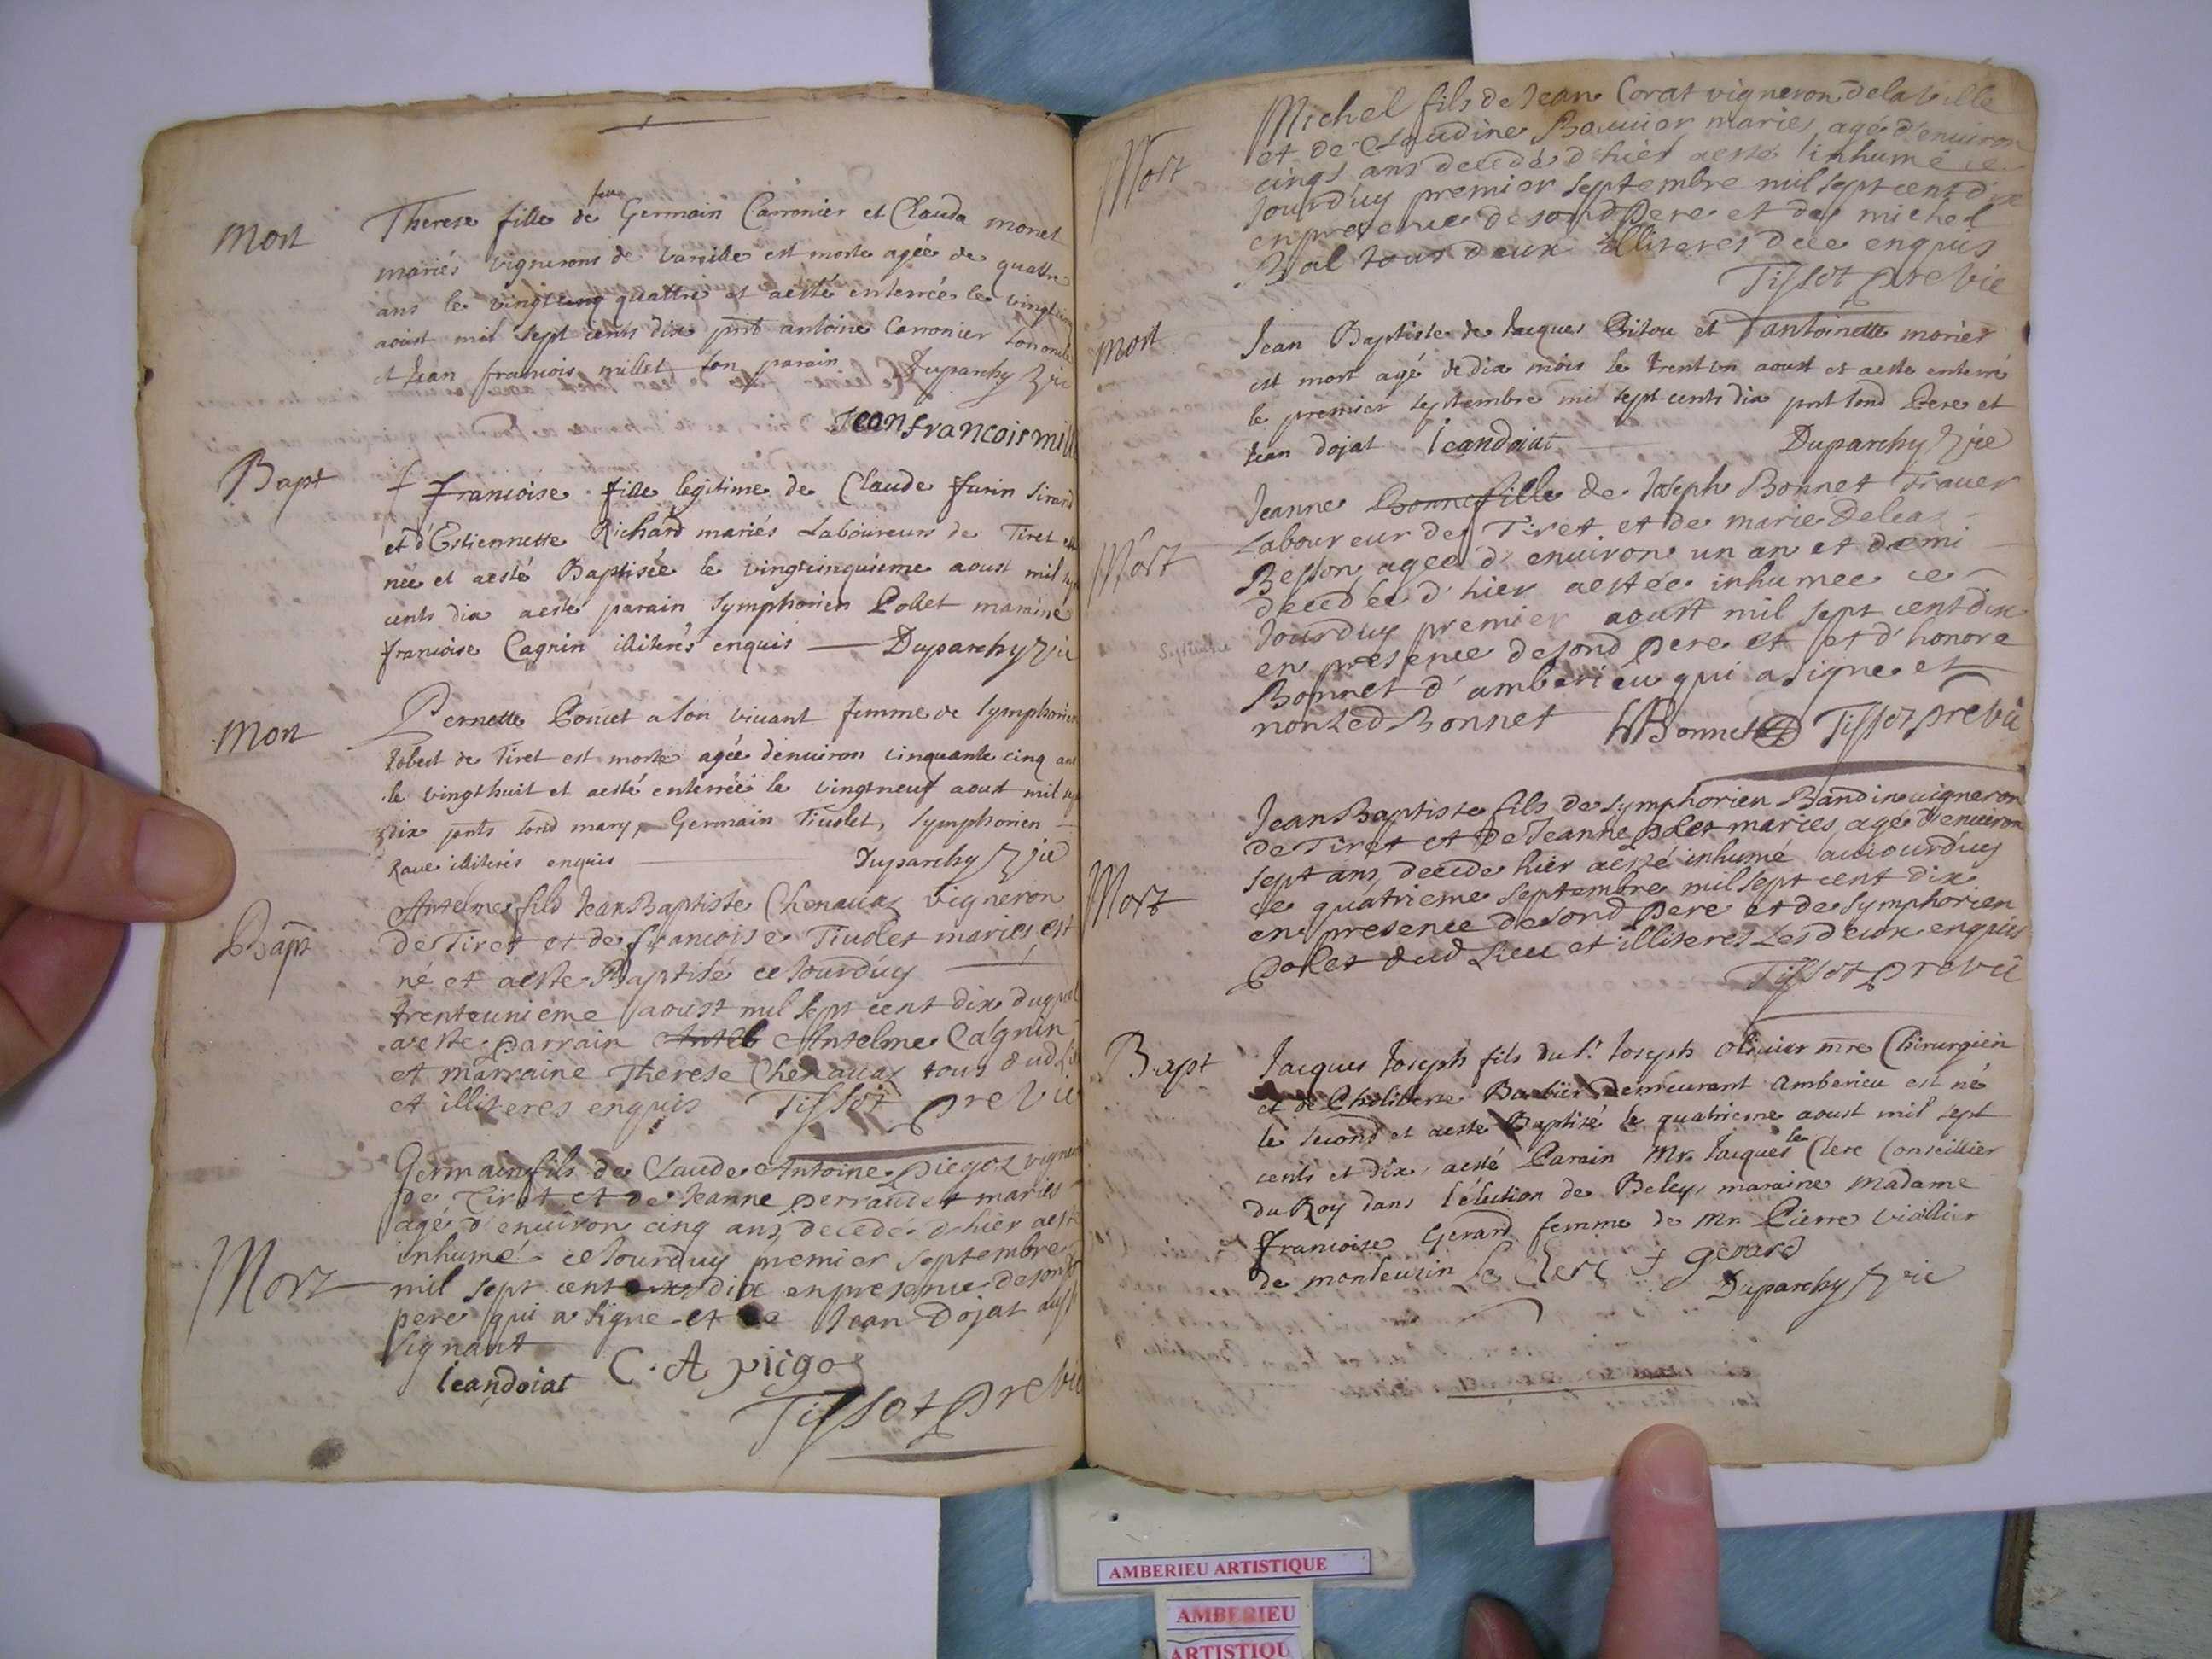 Mort
Therese fille de feu Germain Carronier et Clauda monet
mariés vignerons de Vareille est morte agée de quattre
ans le vingt quattre et aesté enterrée le
aoust mil sept cents dix pnt antoine Carronier son oncle
et Jean francois millet son parain Duparchy vic
Jean francois mill
Bapt
françoise fille legitime de Claude furin
et d'Estiennette Richard mariés Laboureurs de Tiret est
née et aesté Baptisée le vingtcinquieme aoust mil sept
cents dix aesté parain Symphorien Pollet maraine
francoise Cagnin illiterés enquis Duparchy vic
Mort
Pernette Poncet a son vivant femme de Symphorien
Robert de Tiret est morte agée denuiron cinquante cinq ans
le vingthuit et aesté enterrée le vingtneuf aoust mil sept
dix pnts sond mary, Germain Tiuolet, Symphorien
Raue illiterés enquis Duparchy vic
Bapt
Antelme fils Jean Baptiste Chenauaz vigneron
de Tiret et de francoise Tiuolet maries est
né et aeste Baptisé ce Jourduy
trenteunieme aoust mil sept cent dix duquel
aeste parrain Antelme Cagnin
et marraine Therese Chenauaz tous dud
et illiteres enquis Tissot pre vic
Mort
Germain fils de Claude Antoine piegoz vigneron
de Tiret et de Jeanne perraudet maries
agé d'enuiron cinq ans decedé d'hier aesté
inhumé ce Jourduy premier septembre
mil sept cent dix en presence de son
pere qui a signe et de Jean Dojat
signant
Jeandoiat C. A piegoz
Tissot pre vic
Mort
Michel fils de Jean Corat vigneron de la ville
et de Claudine Bouuier maries agé d'enuiron
cinqs ans decedé d'hier aesté inhumé ce
Jourduy premier septembre mil sept cent dix
en presence de sond Pere et de michel
Bal tous deux illiteres de ce enquis
Tissot pre vic
mort
Jean Baptiste de Jacques Pitou et d'antoinette morier
est mort agé de dix mois le trentun aoust et aesté enterré
le premier septembre mil sept cents dix pnt sond Pere et
Jean Dojat Jeandoiat Duparchy vic
Mort
Jeanne Bonne fille de Joseph Bonnet Trauer
Laboureur de Tiret et de marie Deleaz
Besson agee d'enuiron un an et demi
decedée d'hier aestée inhumee ce
Jourduy premier aoust mil sept cent dix
septembre
en presence de sond Pere et et d'honore
Bonnet d'amberieu qui a signe et
non Led Bonnet HBonnet Tissot pre vic
Mort
Jean Baptiste fils de Symphorien Bandin vigneron
de Tiret et de Jeanne Polet maries agé d'enuiron
sept ans decede hier aesté inhumé auiourduy
ce quatrieme septembre mil sept cent dix
en presence de sond Pere et de Symphorien
Polet dud Lieu et illiteres Les deux enquis
Tissot pre vic
Bapt
Jacques Joseph fils du Sr Joseph oliuier mre Chirurgien
et de Barbier demeurant Amberieu est né
le second et aesté Baptisé le quatrieme aoust mil sept
cents et dix, aesté Parain Mr Jacques le Clerc Conseillier
du Roy dans l'élection de Beley, maraine Madame
francoise Gerard femme de Mr. Pierre viallier
de monteusin Le Clerc f gerard
Duparchy vic
AMBERIEU ARTISTIQUE
AMBERIEU
ARTISTIQU